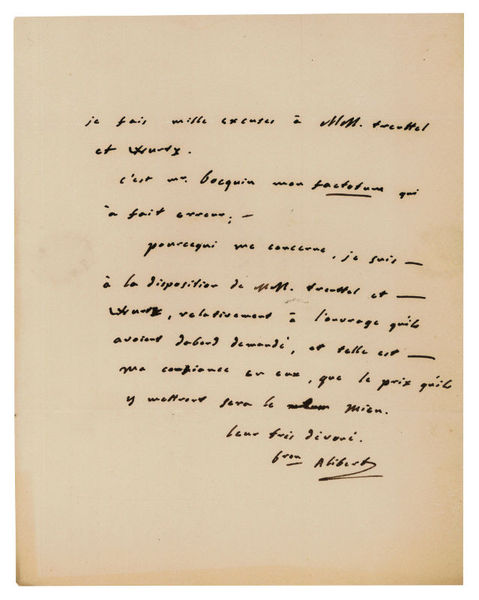 je fais mille excuses à MM. treuttel
et Wurtz.
c'est mr. bocquin mon factotum qui
à fait erreur; —
pourcequi me concerne, je suis —
à la disposition de MM. treuttel et —
Wurtz, relativement à l'ouvrage qu'ils
avoient dabord demandé, et telle est —
ma confiance en eux, que le prix qu'ils
y mettront sera le mien.
leur très dévoué.
bron Alibert